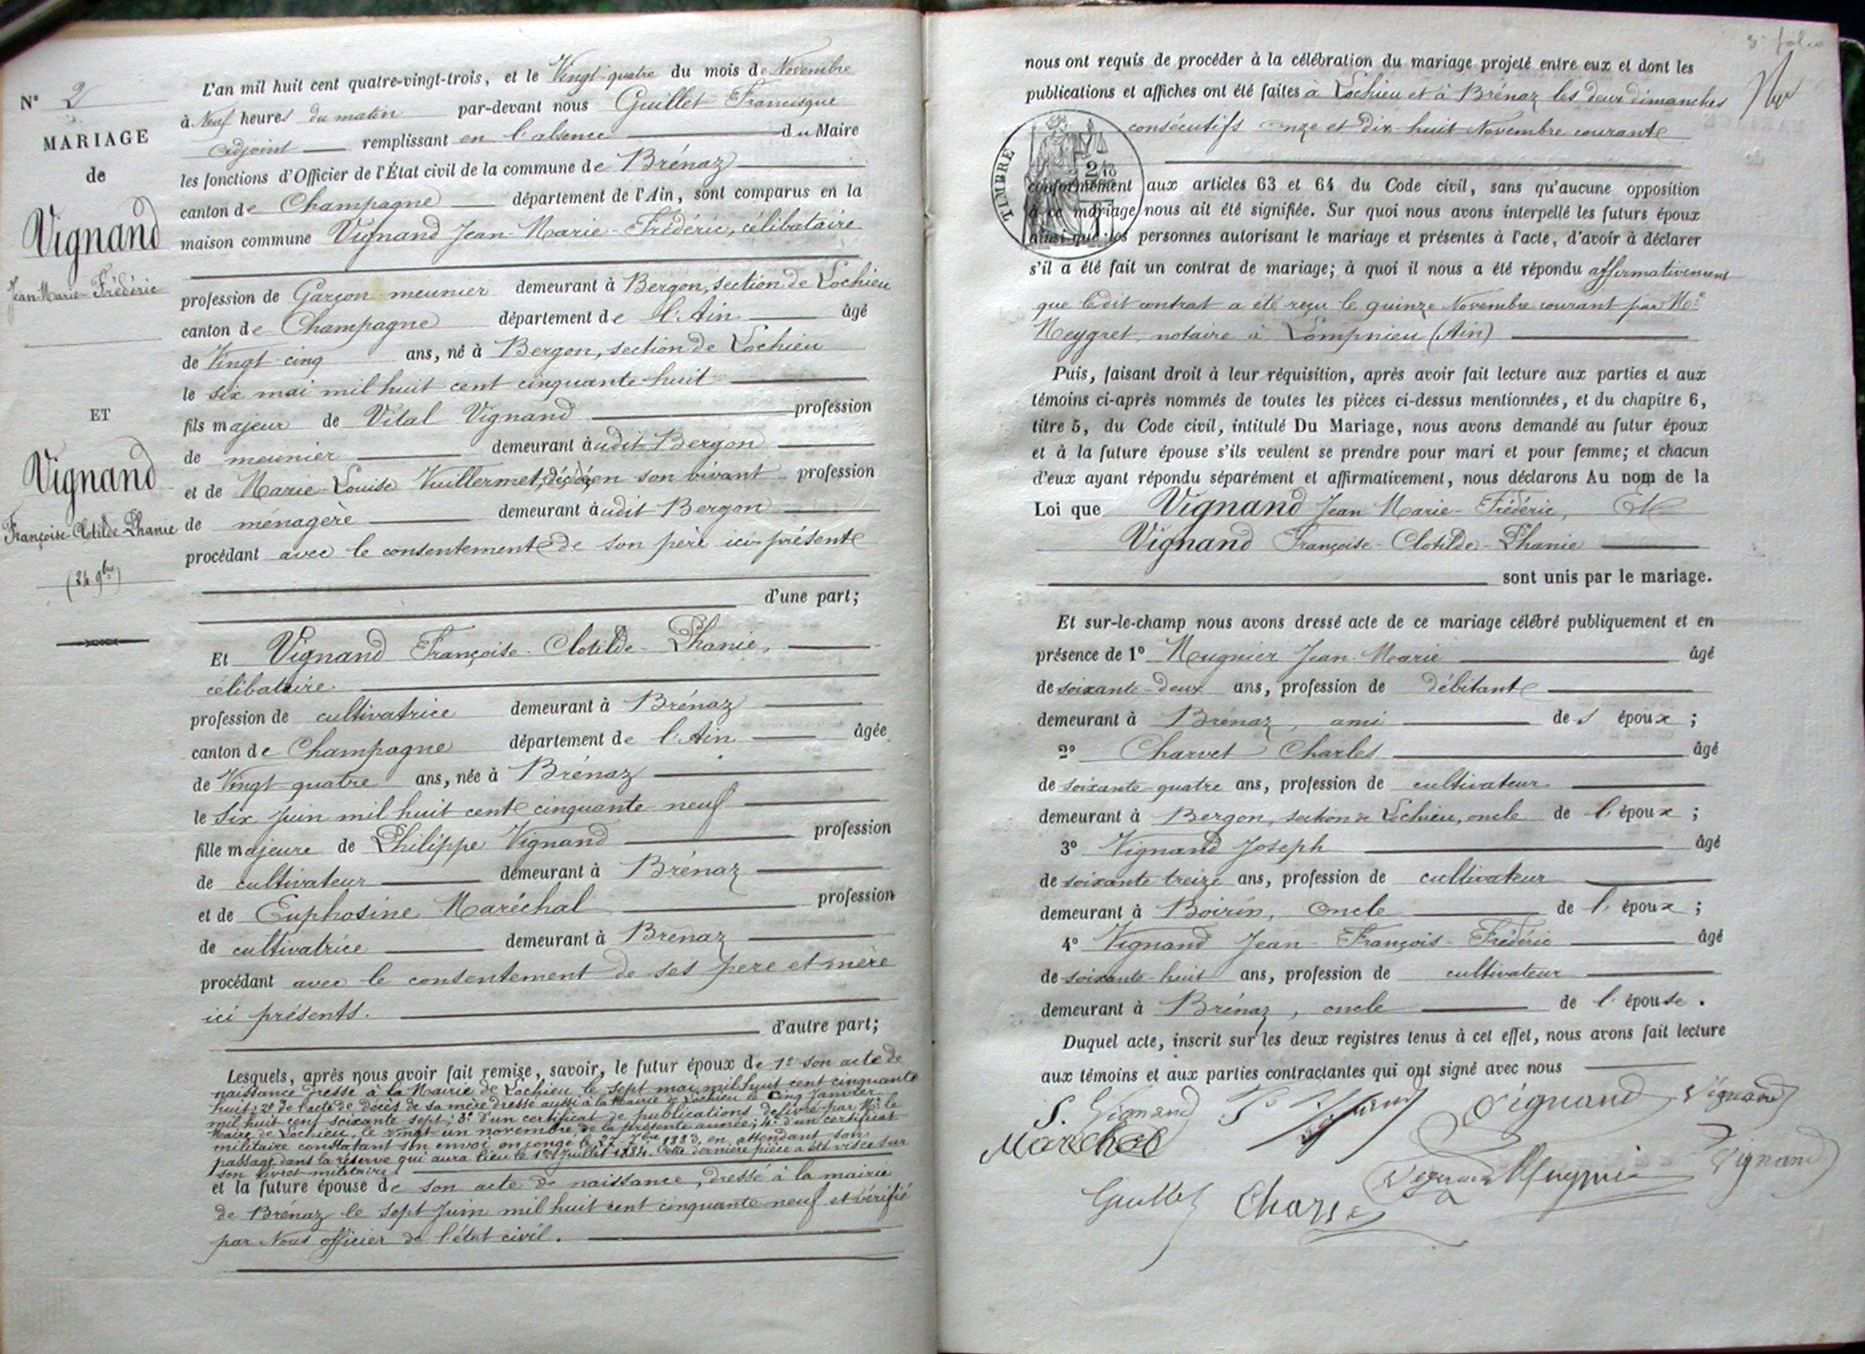 N° 2
MARIAGE
de
Vignand
Jean-Marie-Frédéric
ET
Vignand
Françoise-Clotilde-Phanie
(24 9bre)
L'an mil huit cent quatre-vingt-trois, et le Vingt-quatre du mois de Novembre
à Neuf heures du matin par-devant nous Guillet Francisque
adjoint remplissant en l'absence du Maire
les fonctions d'Officier de l'État civil de la commune de Brénaz
canton de Champagne département de l'Ain, sont comparus en la
maison commune Vignand Jean-Marie-Frédéric, célibataire
profession de Garçon meunier demeurant à Bergon, section de Lochieu
canton de Champagne département de l'Ain âgé
de Vingt-cinq ans, né à Bergon, section de Lochieu
le six mai mil huit cent cinquante-huit
fils majeur de Vital Vignand profession
de meunier demeurant à udit Bergon
et de Marie-Louise Vuillermet, décédée, en son vivant profession
de ménagère demeurant à udit Bergon
procédant avec le consentement de son père ici présent
d'une part;
Et Vignand Françoise-Clotilde-Phanie,
célibataire
profession de cultivatrice demeurant à Brénaz
canton de Champagne département de l'Ain âgée
de Vingt quatre ans, née à Brénaz
le six juin mil huit cent cinquante neuf
fille majeure de Philippe Vignand profession
de cultivateur demeurant à Brénaz
et de Euphosine Maréchal profession
de cultivatrice demeurant à Brénaz
procédant avec le consentement de ses père et mère
ici présents.
d'autre part;
Lesquels, après nous avoir fait remise, savoir, le futur époux de 1° son acte de
naissance dressé à la Mairie de Lochieu le sept mai mil huit cent cinquante
huit; 2° de l'acte de décès de sa mère dressé aussi à la Mairie de Lochieu le cinq Janvier
mil huit cent soixante sept; 3° d'un certificat de publications, délivré par Mr. le
Maire de Lochieu, le vingt un novembre de la présente année; 4° d'un certificat
militaire constatant son envoi en congé le 27 7bre 1883, en attendant son
passage dans la réserve qui aura lieu le 1er Juillet 1884. Cette dernière pièce a été visée sur
son livret militaire.
et la future épouse de son acte de naissance, dressé à la mairie
de Brénaz le sept Juin mil huit cent cinquante neuf et vérifié
par Nous officier de l'état civil.
3e folio
nous ont requis de procéder à la célébration du mariage projeté entre eux et dont les
publications et affiches ont été faites à Lochieu et à Brénaz les deux dimanches
consécutifs onze et dix-huit Novembre courant
TIMBRE
conformément aux articles 63 et 64 du Code civil, sans qu'aucune opposition
à ce mariage nous ait été signifiée. Sur quoi nous avons interpellé les futurs époux
ainsi que les personnes autorisant le mariage et présentes à l'acte, d'avoir à déclarer
s'il a été fait un contrat de mariage; à quoi il nous a été répondu affirmativement
que ledit contrat a été reçu le quinze Novembre courant par Me
Meygret, notaire à Lompnieu (Ain)
Puis, faisant droit à leur réquisition, après avoir fait lecture aux parties et aux
témoins ci-après nommés de toutes les pièces ci-dessus mentionnées, et du chapitre 6,
titre 5, du Code civil, intitulé Du Mariage, nous avons demandé au futur époux
et à la future épouse s'ils veulent se prendre pour mari et pour femme; et chacun
d'eux ayant répondu séparément et affirmativement, nous déclarons Au nom de la
Loi que Vignand Jean-Marie-Frédéric, Et
Vignand Françoise-Clotilde-Phanie
sont unis par le mariage.
Et sur-le-champ nous avons dressé acte de ce mariage célébré publiquement et en
présence de 1° Mugnier Jean-Marie âgé
de soixante-deux ans, profession de débitant
demeurant à Brénaz, ami des époux;
2° Charvet Charles âgé
de soixante quatre ans, profession de cultivateur
demeurant à Bergon, section de Lochieu, oncle de l'époux;
3° Vignand Joseph âgé
de soixante treize ans, profession de cultivateur
demeurant à Boirin, oncle de l'époux;
4° Vignand Jean-François-Frédéric âgé
de soixante-huit ans, profession de cultivateur
demeurant à Brénaz, oncle de l'épouse.
Duquel acte, inscrit sur les deux registres tenus à cet effet, nous avons fait lecture
aux témoins et aux parties contractantes qui ont signé avec nous
Vignand Vignand Vignand
Maréchal
Mugnier Vignand
Guillet